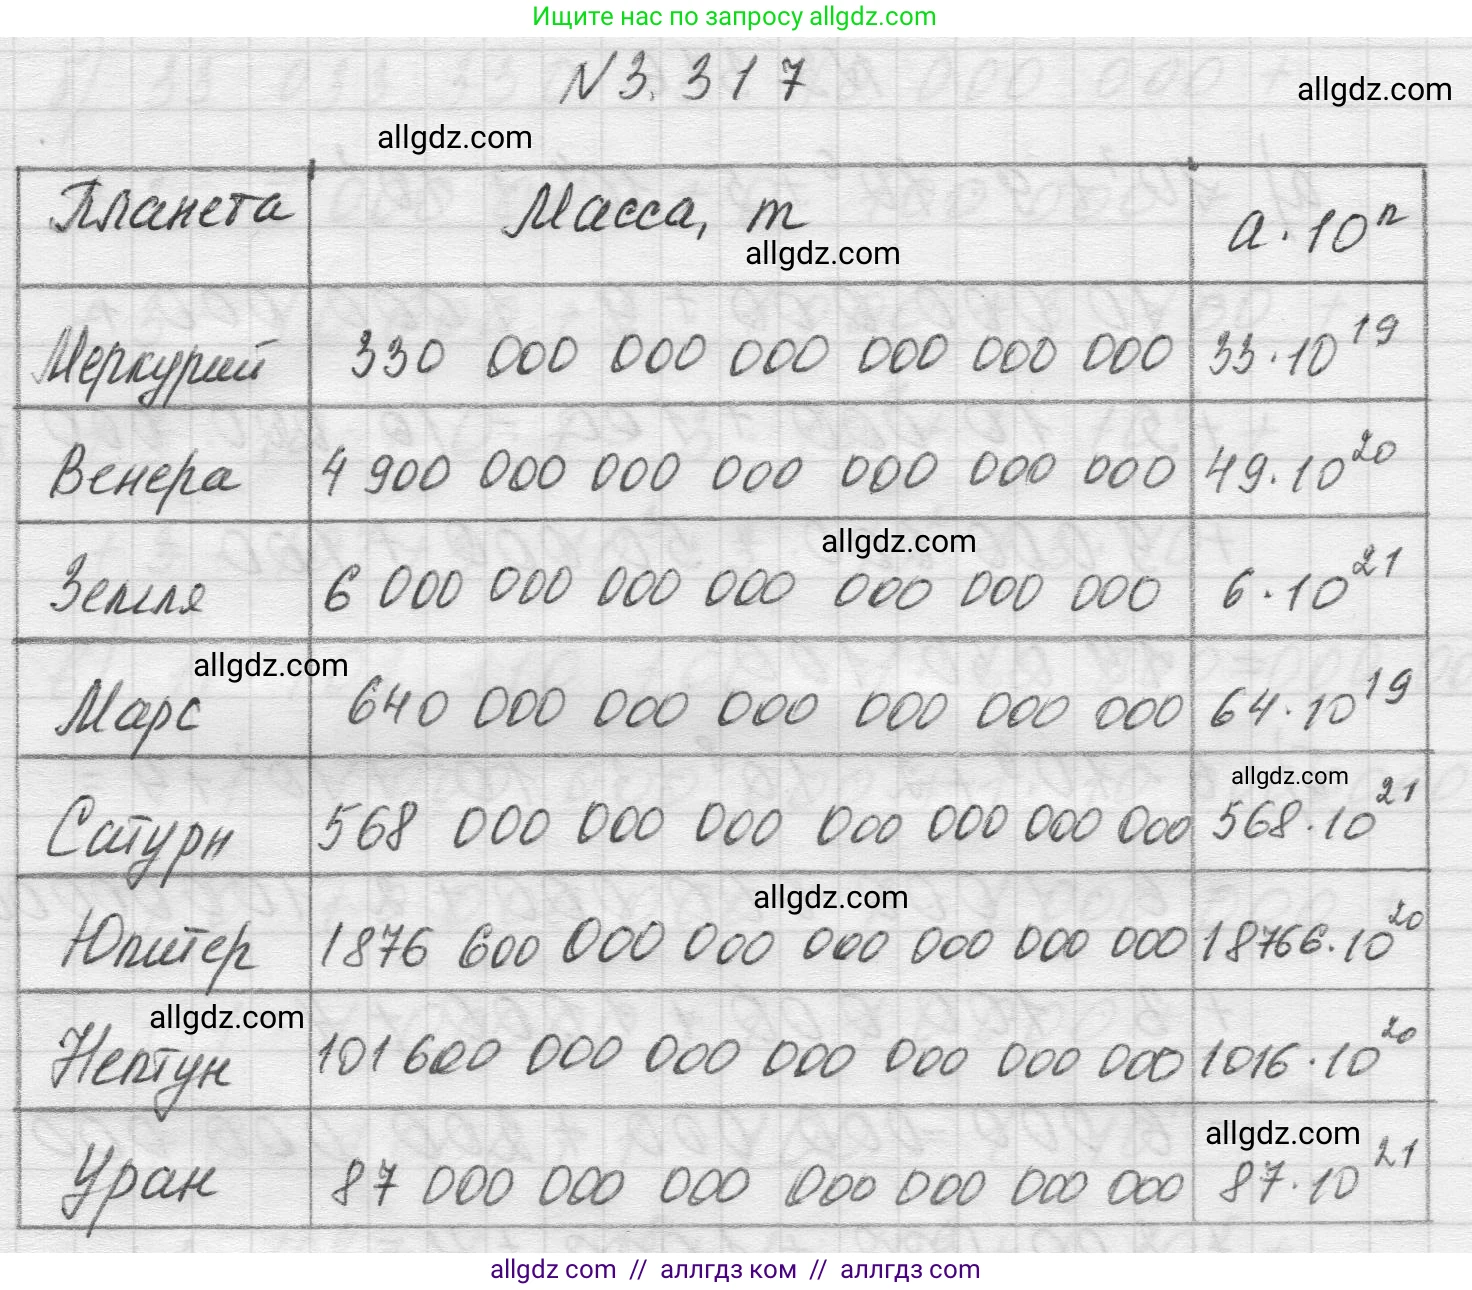 Ищите нас по запросу allgdz.com
N 3.317
allgdz.com
allgdz.com
Планета Масса, т a·10ⁿ
allgdz.com
Меркурий 330 000 000 000 000 000 000 33·10¹⁹
Венера 4 900 000 000 000 000 000 000 49·10²⁰
allgdz.com
Земля 6 000 000 000 000 000 000 000 6·10²¹
allgdz.com
Марс 640 000 000 000 000 000 000 64·10¹⁹
allgdz.com
Сатурн 568 000 000 000 000 000 000 000 568·10²¹
allgdz.com
Юпитер 1876 600 000 000 000 000 000 000 18766·10²⁰
allgdz.com
Нептун 101 600 000 000 000 000 000 000 1016·10²⁰
allgdz.com
Уран 87 000 000 000 000 000 000 000 87·10²¹
allgdz com // аллгдз ком // аллгдз com